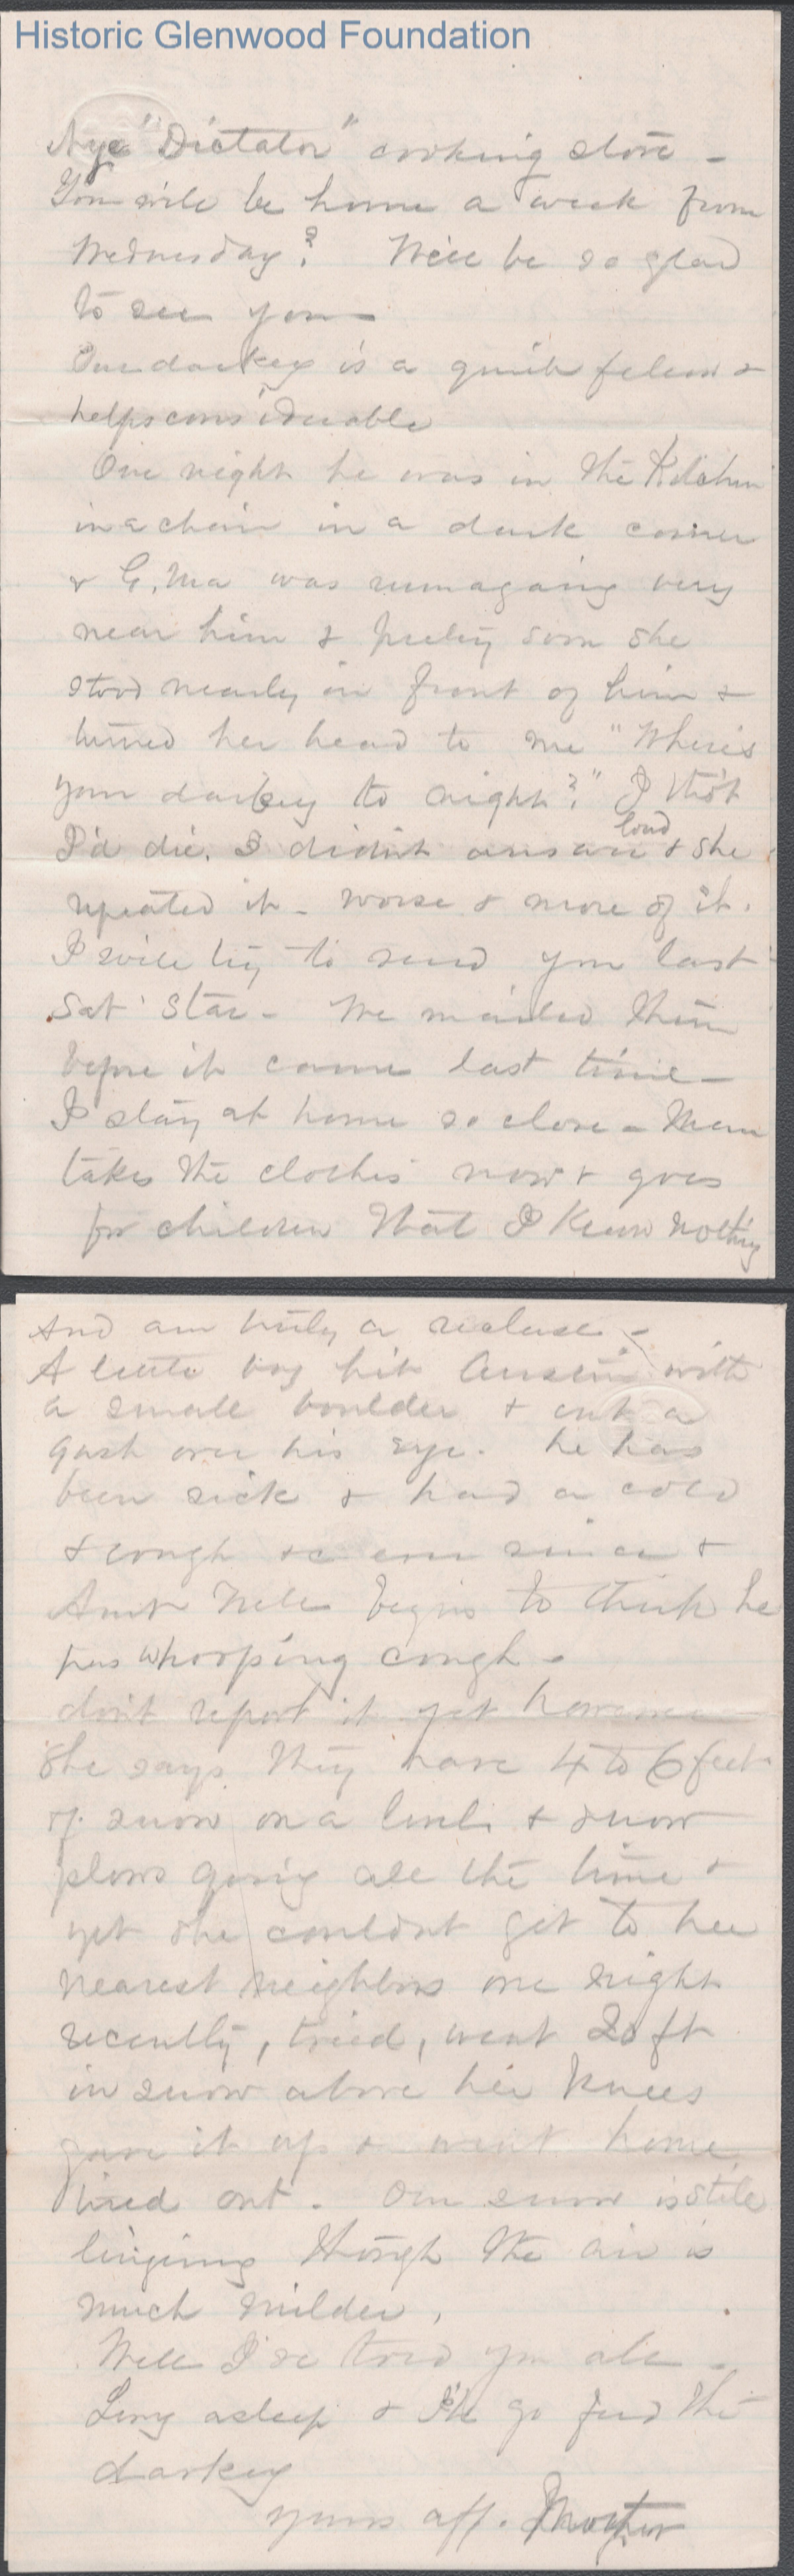 Historic Glenwood Foundation
"Dictator" cooking stove -
You will be home a week from
Wednesday? We'll be so glad
to see you -
Our darkey is a quiet fellow &
helps considerable
One night he was in the Kitchen
in a chair in a dark corner
& G. Ma was rumagaing very
near him & pretty soon she
stood nearly in front of him &
turned her head to me "Where's
your darkey to night?" I tho't
I'd die. I didn't answer loud & she
repeated it - worse & more of it.
I will try to send you last
Sat Star - We mailed them
before it came last time -
I stay at home so close - Mem
takes the clothes now & goes
for children that I know nothing
And am truly a recluse -
A little boy hit Austin with
a small boulder & cut a
gash over his eye. he has
been sick & had a cold
& cough &c ever since &
Aunt Nell begins to think he
has whooping cough -
don't report it yet however
She says they have 4 to 6 feet
of snow on a level & snow
plows going all the time &
yet she couldn't get to her
nearest neighbors one night
recently, tried, went 20 ft
in snow above her knees
gave it up & went home
tired out. Our snow is still
lingering though the air is
much milder,
Well I've told you all -
Leny asleep & I'll go feed the
darkey
yours aff. Mother